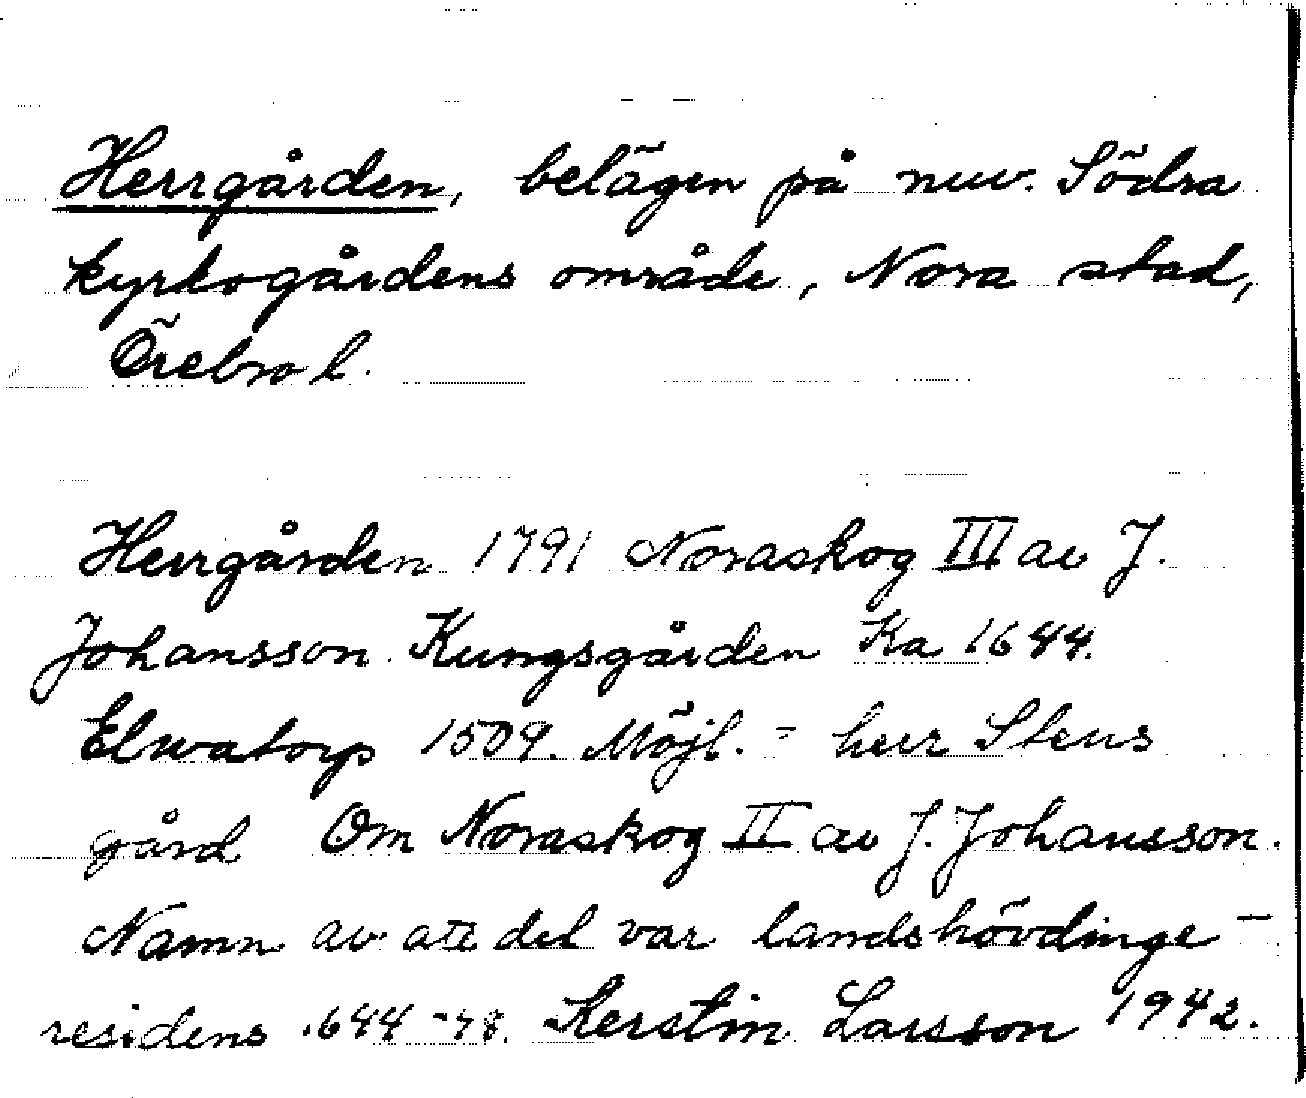 Herrgården, belägen på nuv. Södra
kyrkogårdens område, Nora stad,
Örebro l.
Herrgården 1791 Noraskog III av J.
Johansson. Kungsgården Ka 1644.
Elwatorp 1509. Möjl. = herr Stens
gård Om Noraskog II av J. Johansson.
Namn av att del var landshövdinge-
residens 1644-48. Kerstin Larsson 1942.